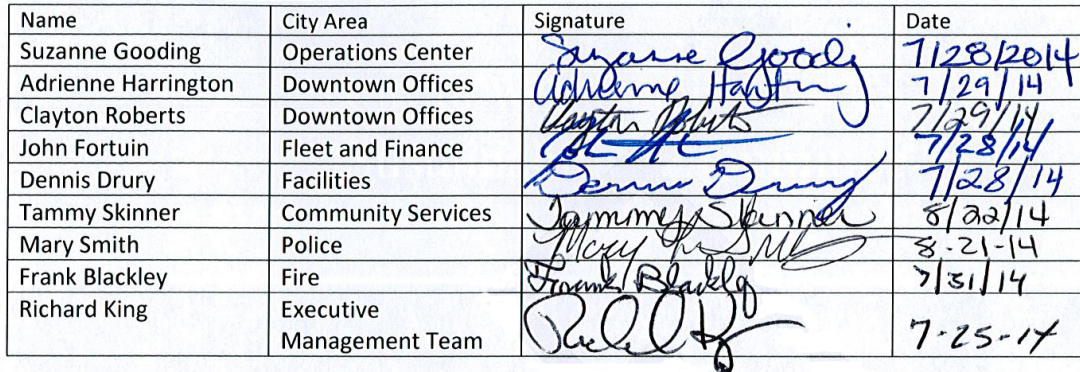 Name City Area Signature Date
Suzanne Gooding Operations Center Suzanne Gooding 7/28/2014
Adrienne Harrington Downtown Offices Adrienne 7/29/14
Clayton Roberts Downtown Offices Clayton Roberts 7/29/14
John Fortuin Fleet and Finance 7/28/14
Dennis Drury Facilities Dennis Drury 7/28/14
Tammy Skinner Community Services Tammy Skinner 8/22/14
Mary Smith Police Mary 8-21-14
Frank Blackley Fire Frank Blackley 7/31/14
Richard King Executive
Management Team 7-25-14